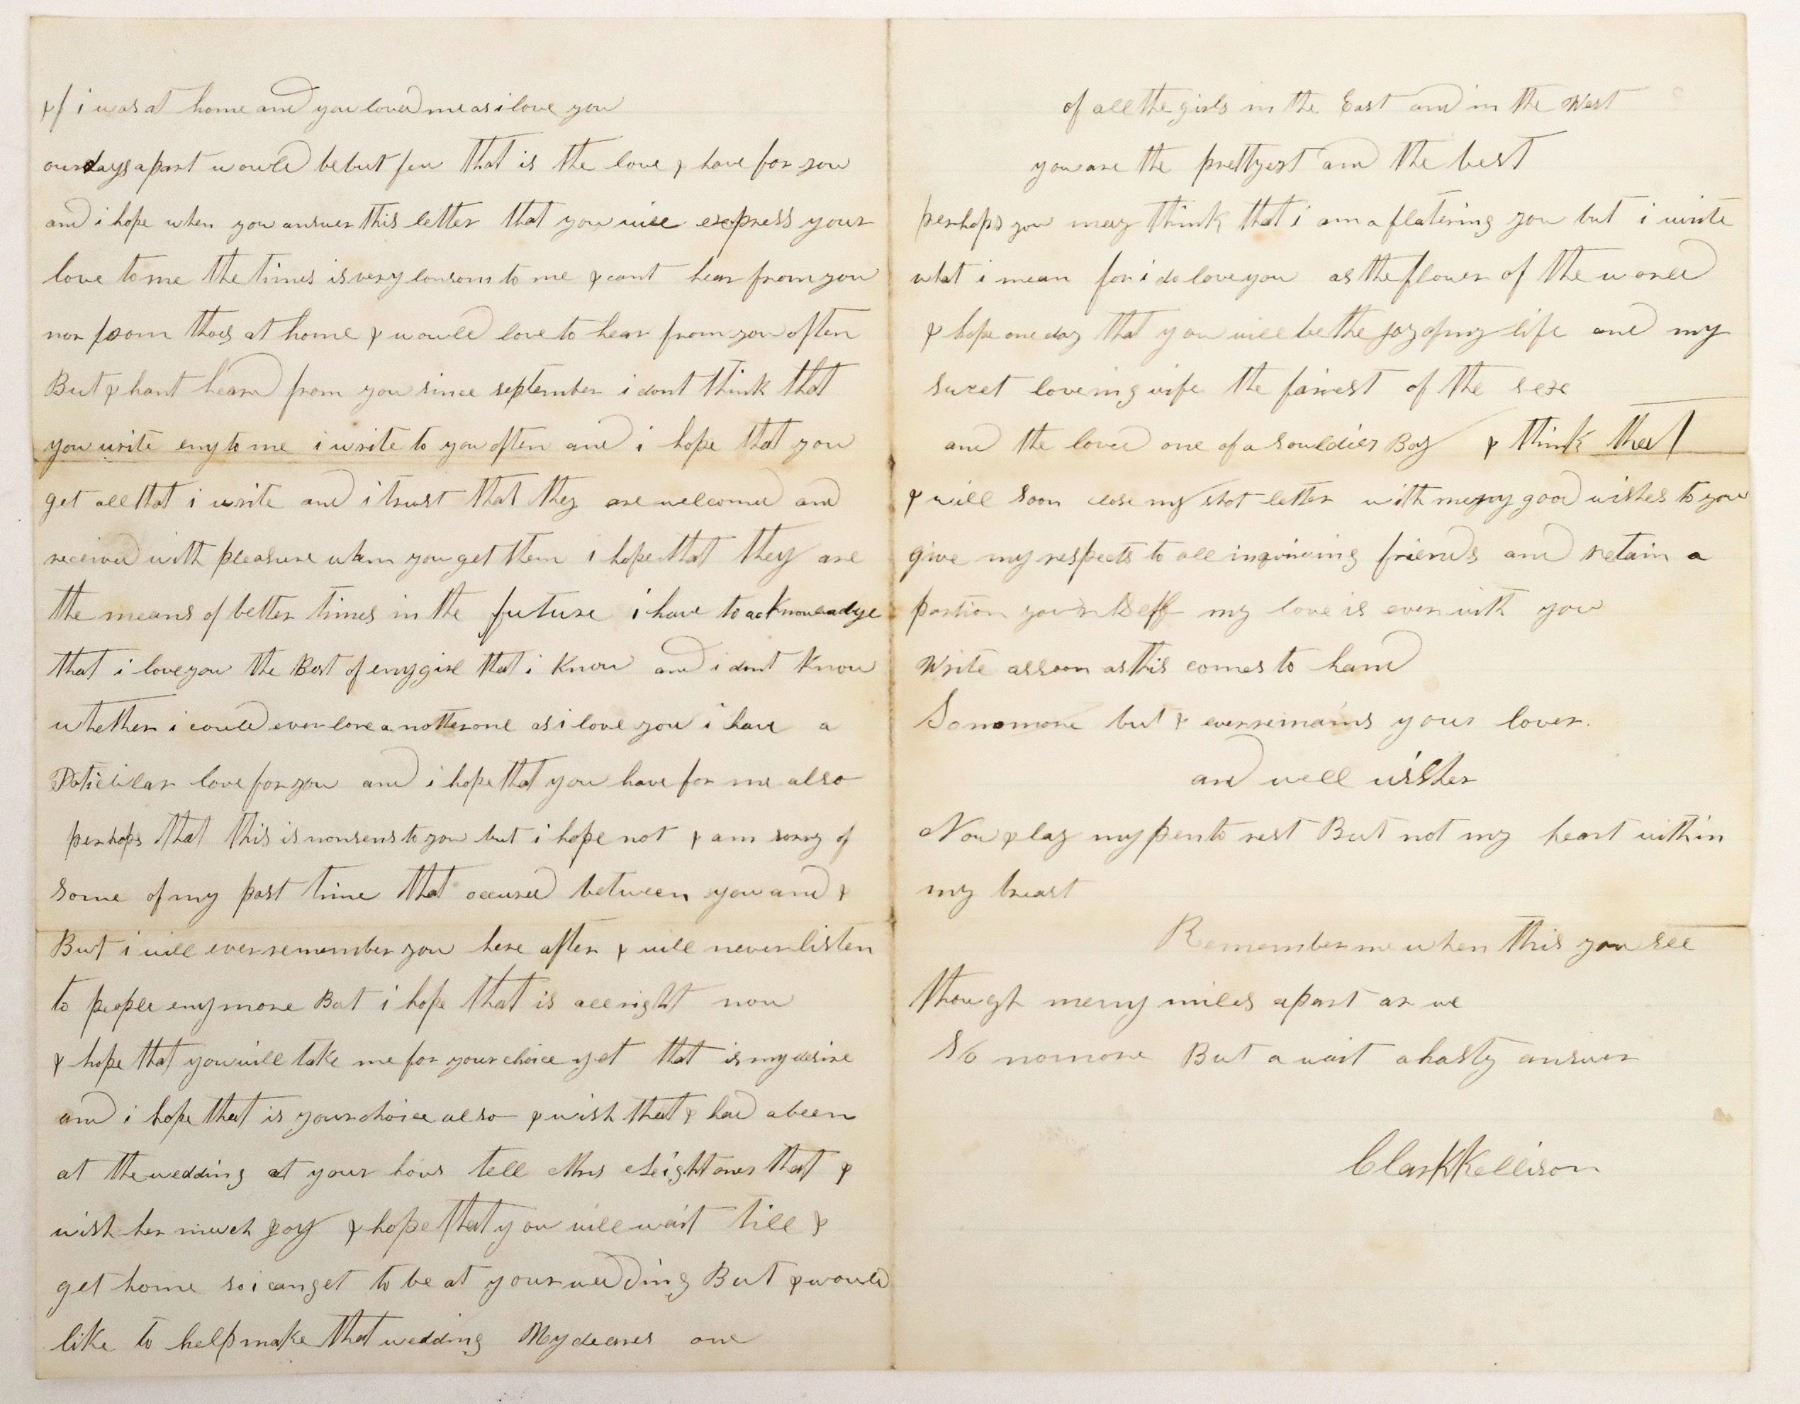 if i was at home and you loved me as i love you
our days apart would be but few that is the love i have for you
and i hope when you answer this letter that you will express your
love to me the times is very lonsom to me i cant hear from you
nor from thos at home i would love to hear from you often
But i hant heard from you since september i dont think that
you write eny to me i write to you often and i hope that you
get all that i write and i trust that they are welcomed and
received with pleasure when you get them i hope that they are
the means of better times in the future i have to acknowladge
that i love you the Best of eny girl that i Know and i dont Know
whether i could ever love a nother one as i love you i have a
Paticular love for you and i hope that you have for me also
perhaps that this is nonsens to you but i hope not i am sorry of
some of my past time that occured between you and i
But i will ever remember you here after i will never listen
to people eny more But i hope that is all right now
i hope that you will take me for your choice yet that is my desire
and i hope that is your choice also i wish that i had a been
at the wedding at your hous tell Mrs that i
wish her much joy i hope that you will wait till i
get home so i can get to be at your wedding But i would
like to help make that wedding My deares one
of all the girls in the East and in the West
you are the prettyest and the best
perhaps you may think that i am a flatering you but i write
what i mean for i do love you as the flower of the world
i hope one day that you will be the joy of my life and my
sweet loveing wife the fairest of the sex
and the loved one of a souldier Boy i think that
i will soon close my shot letter with meny good wishes to you
give my respects to all inquireing friends and retain a
portion yourself my love is ever with you
Write as soon as this comes to hand
So no more but i ever remains your lover.
and well wisher
Now i lay my pen to rest But not my heart within
my breast
Remember me when this you see
though meny miles apart ar we
So no more But a wait a hasty answer
Clark Kellison